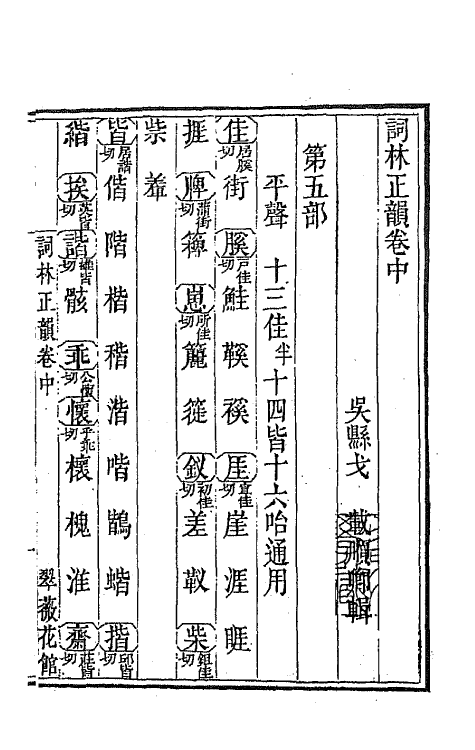 詞林正韻卷中
吳縣戈 載順卿輯
第五部
平聲 十三佳半十四皆十六咍通用
佳居膎切街膎戶佳切鮭鞵徯厓宜佳切崖涯睚
捱牌蒲街切簰崽所佳切簁釵初佳切差靫柴鉏佳切
祡䔑
皆居諧切偕階楷稭湝喈鶛蝔揩邱皆切
緒挨英皆切諧雄皆切骸乖公懷切懷乎乖切櫰槐淮齋莊皆切
詞林正韻卷中 一 翠薇花館